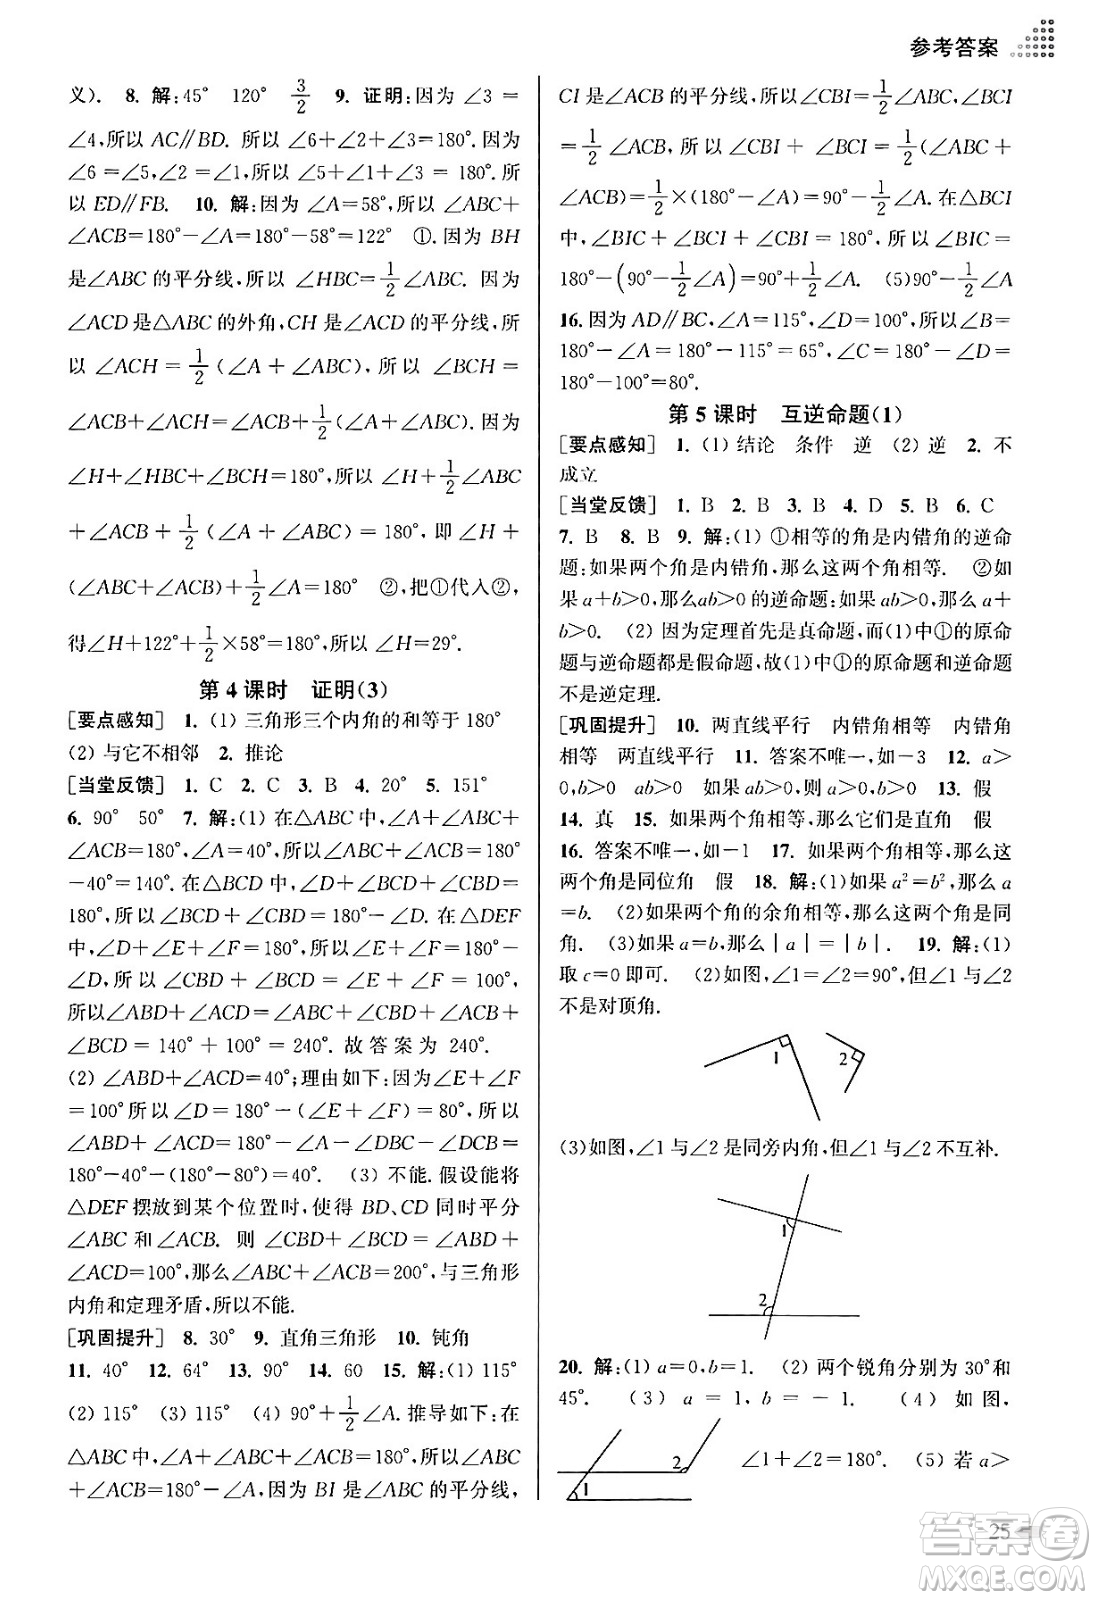 参考答案
义). 8. 解:45° 120° 3/2 9. 证明:因为∠3=
∠4,所以 AC∥BD. 所以∠6+∠2+∠3=180°. 因为
∠6=∠5,∠2=∠1,所以∠5+∠1+∠3=180°. 所
以 ED∥FB. 10. 解:因为∠A=58°,所以∠ABC+
∠ACB=180°-∠A=180°-58°=122° ①. 因为 BH
是∠ABC 的平分线,所以∠HBC=1/2∠ABC. 因为
∠ACD 是△ABC 的外角,CH 是∠ACD 的平分线,所
以∠ACH=1/2(∠A+∠ABC),所以∠BCH=
∠ACB+∠ACH=∠ACB+1/2(∠A+∠ABC). 因为
∠H+∠HBC+∠BCH=180°,所以∠H+1/2∠ABC
+∠ACB+1/2(∠A+∠ABC)=180°,即∠H+
(∠ABC+∠ACB)+1/2∠A=180° ②,把①代入②,
得∠H+122°+1/2×58°=180°,所以∠H=29°.
第 4 课时 证明(3)
[要点感知] 1. (1) 三角形三个内角的和等于 180°
(2) 与它不相邻 2. 推论
[当堂反馈] 1. C 2. C 3. B 4. 20° 5. 151°
6. 90° 50° 7. 解:(1) 在△ABC 中,∠A+∠ABC+
∠ACB=180°,∠A=40°,所以∠ABC+∠ACB=180°
-40°=140°. 在△BCD 中,∠D+∠BCD+∠CBD=
180°,所以∠BCD+∠CBD=180°-∠D. 在△DEF
中,∠D+∠E+∠F=180°,所以∠E+∠F=180°-
∠D,所以∠CBD+∠BCD=∠E+∠F=100°,
所以∠ABD+∠ACD=∠ABC+∠CBD+∠ACB+
∠BCD=140°+100°=240°. 故答案为 240°.
(2) ∠ABD+∠ACD=40°;理由如下:因为∠E+∠F
=100°所以∠D=180°-(∠E+∠F)=80°,所以
∠ABD+∠ACD=180°-∠A-∠DBC-∠DCB=
180°-40°-(180°-80°)=40°. (3) 不能. 假设能将
△DEF 摆放到某个位置时,使得 BD、CD 同时平分
∠ABC 和∠ACB. 则∠CBD+∠BCD=∠ABD+
∠ACD=100°,那么∠ABC+∠ACB=200°,与三角形
内角和定理矛盾,所以不能.
[巩固提升] 8. 30° 9. 直角三角形 10. 钝角
11. 40° 12. 64° 13. 90° 14. 60 15. 解:(1) 115°
(2) 115° (3) 115° (4) 90°+1/2∠A. 推导如下:在
△ABC 中,∠A+∠ABC+∠ACB=180°,所以∠ABC
+∠ACB=180°-∠A,因为 BI 是∠ABC 的平分线,
CI 是∠ACB 的平分线,所以∠CBI=1/2∠ABC,∠BCI
=1/2∠ACB,所以∠CBI+∠BCI=1/2(∠ABC+
∠ACB)=1/2×(180°-∠A)=90°-1/2∠A. 在△BCI
中,∠BIC+∠BCI+∠CBI=180°,所以∠BIC=
180°-(90°-1/2∠A)=90°+1/2∠A. (5)90°-1/2∠A
16. 因为 AD∥BC,∠A=115°,∠D=100°,所以∠B=
180°-∠A=180°-115°=65°,∠C=180°-∠D=
180°-100°=80°.
第 5 课时 互逆命题(1)
[要点感知] 1. (1) 结论 条件 逆 (2) 逆 2. 不
成立
[当堂反馈] 1. B 2. B 3. B 4. D 5. B 6. C
7. B 8. B 9. 解:(1) ①相等的角是内错角的逆命
题:如果两个角是内错角,那么它们相等. ②如
果 a+b>0,那么ab>0 的逆命题:如果 ab>0,那么 a+
b>0. (2) 因为定理首先是真命题,而(1)中①的原命
题与逆命题都是假命题,故(1)中①的原命题和逆命题
不是逆定理.
[巩固提升] 10. 两直线平行 内错角相等 内错角
相等 两直线平行 11. 答案不唯一,如-3 12. a>
0,b>0 ab>0 如果 ab>0,则 a>0,b>0 13. 假
14. 真 15. 如果两个角相等,那么它们是直角 假
16. 答案不唯一,如-1 17. 如果两个角相等,那么这
两个角是同位角 假 18. 解:(1)如果 a²=b²,那么 a
=b. (2)如果两个角的余角相等,那么这两个角是同
角. (3)如果 a=b,那么|a|=|b|. 19. 解:(1)
取 c=0 即可. (2)如图,∠1=∠2=90°,但∠1与∠2
不是对顶角.
1 2
(3)如图,∠1 与∠2 是同旁内角,但∠1 与∠2 不互补.
1
2
20. 解:(1) a=0,b=1. (2) 两个锐角分别为 30°和
45°. (3) a=1,b=-1. (4) 如图,
2
∠1+∠2=180°. (5) 若 a>
1
25
答案圈
MXQE.COM